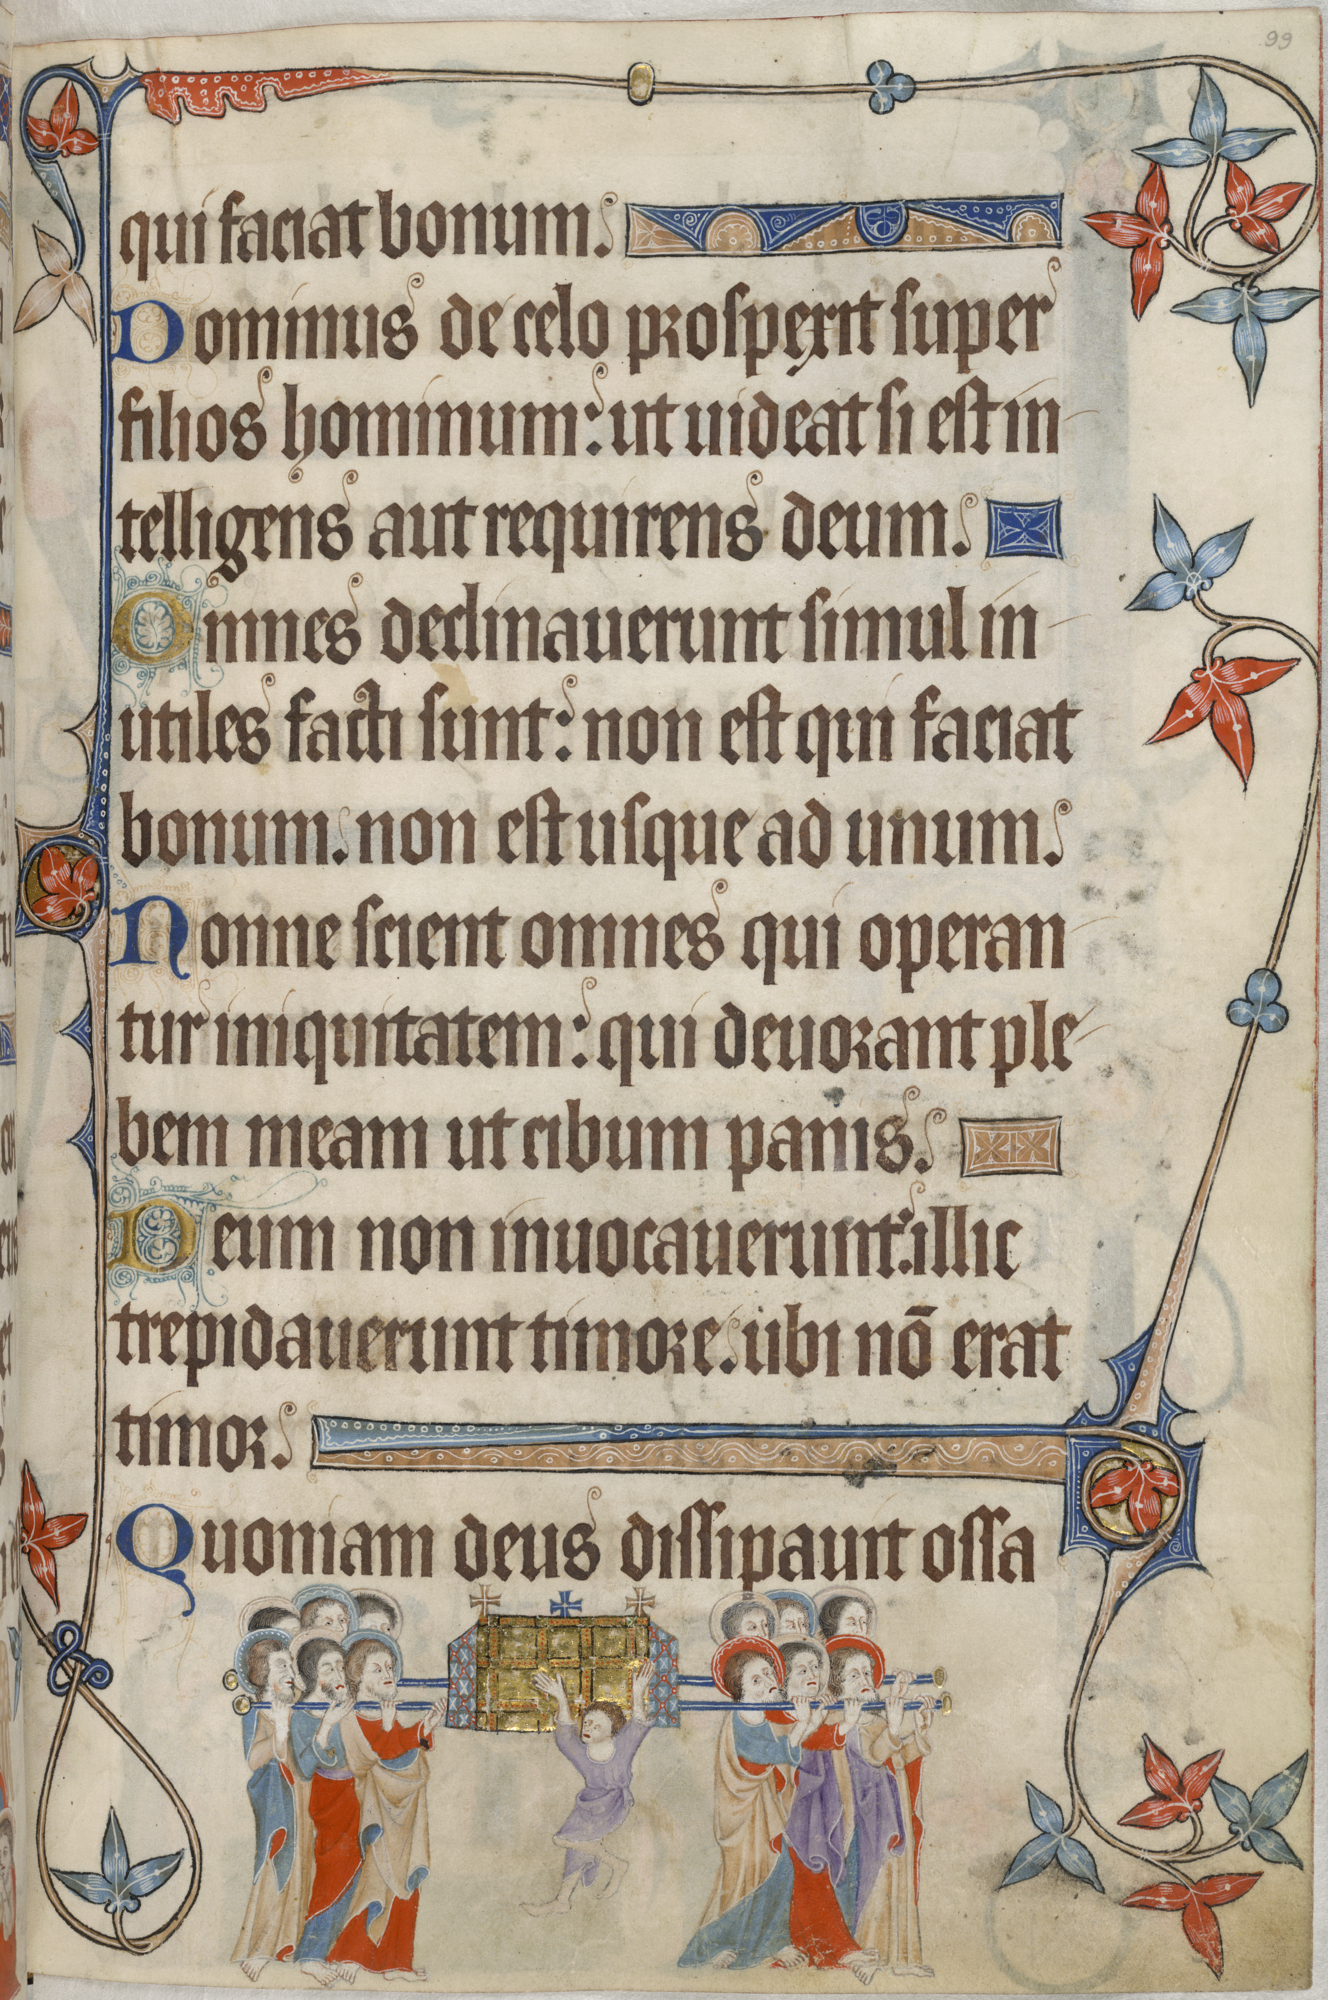 99
qui faciat bonum.
Dominus de celo prospexit super
filios hominum: ut uideat si est in
telligens aut requirens deum.
Omnes declinauerunt simul in
utiles facti sunt: non est qui faciat
bonum. non est usque ad unum.
Nonne scient omnes qui operan
tur iniquitatem: qui deuorant ple
bem meam ut cibum panis.
Deum non inuocauerunt: illic
trepidauerunt timore. ubi nō erat
timor.
Quoniam deus dissipauit ossa